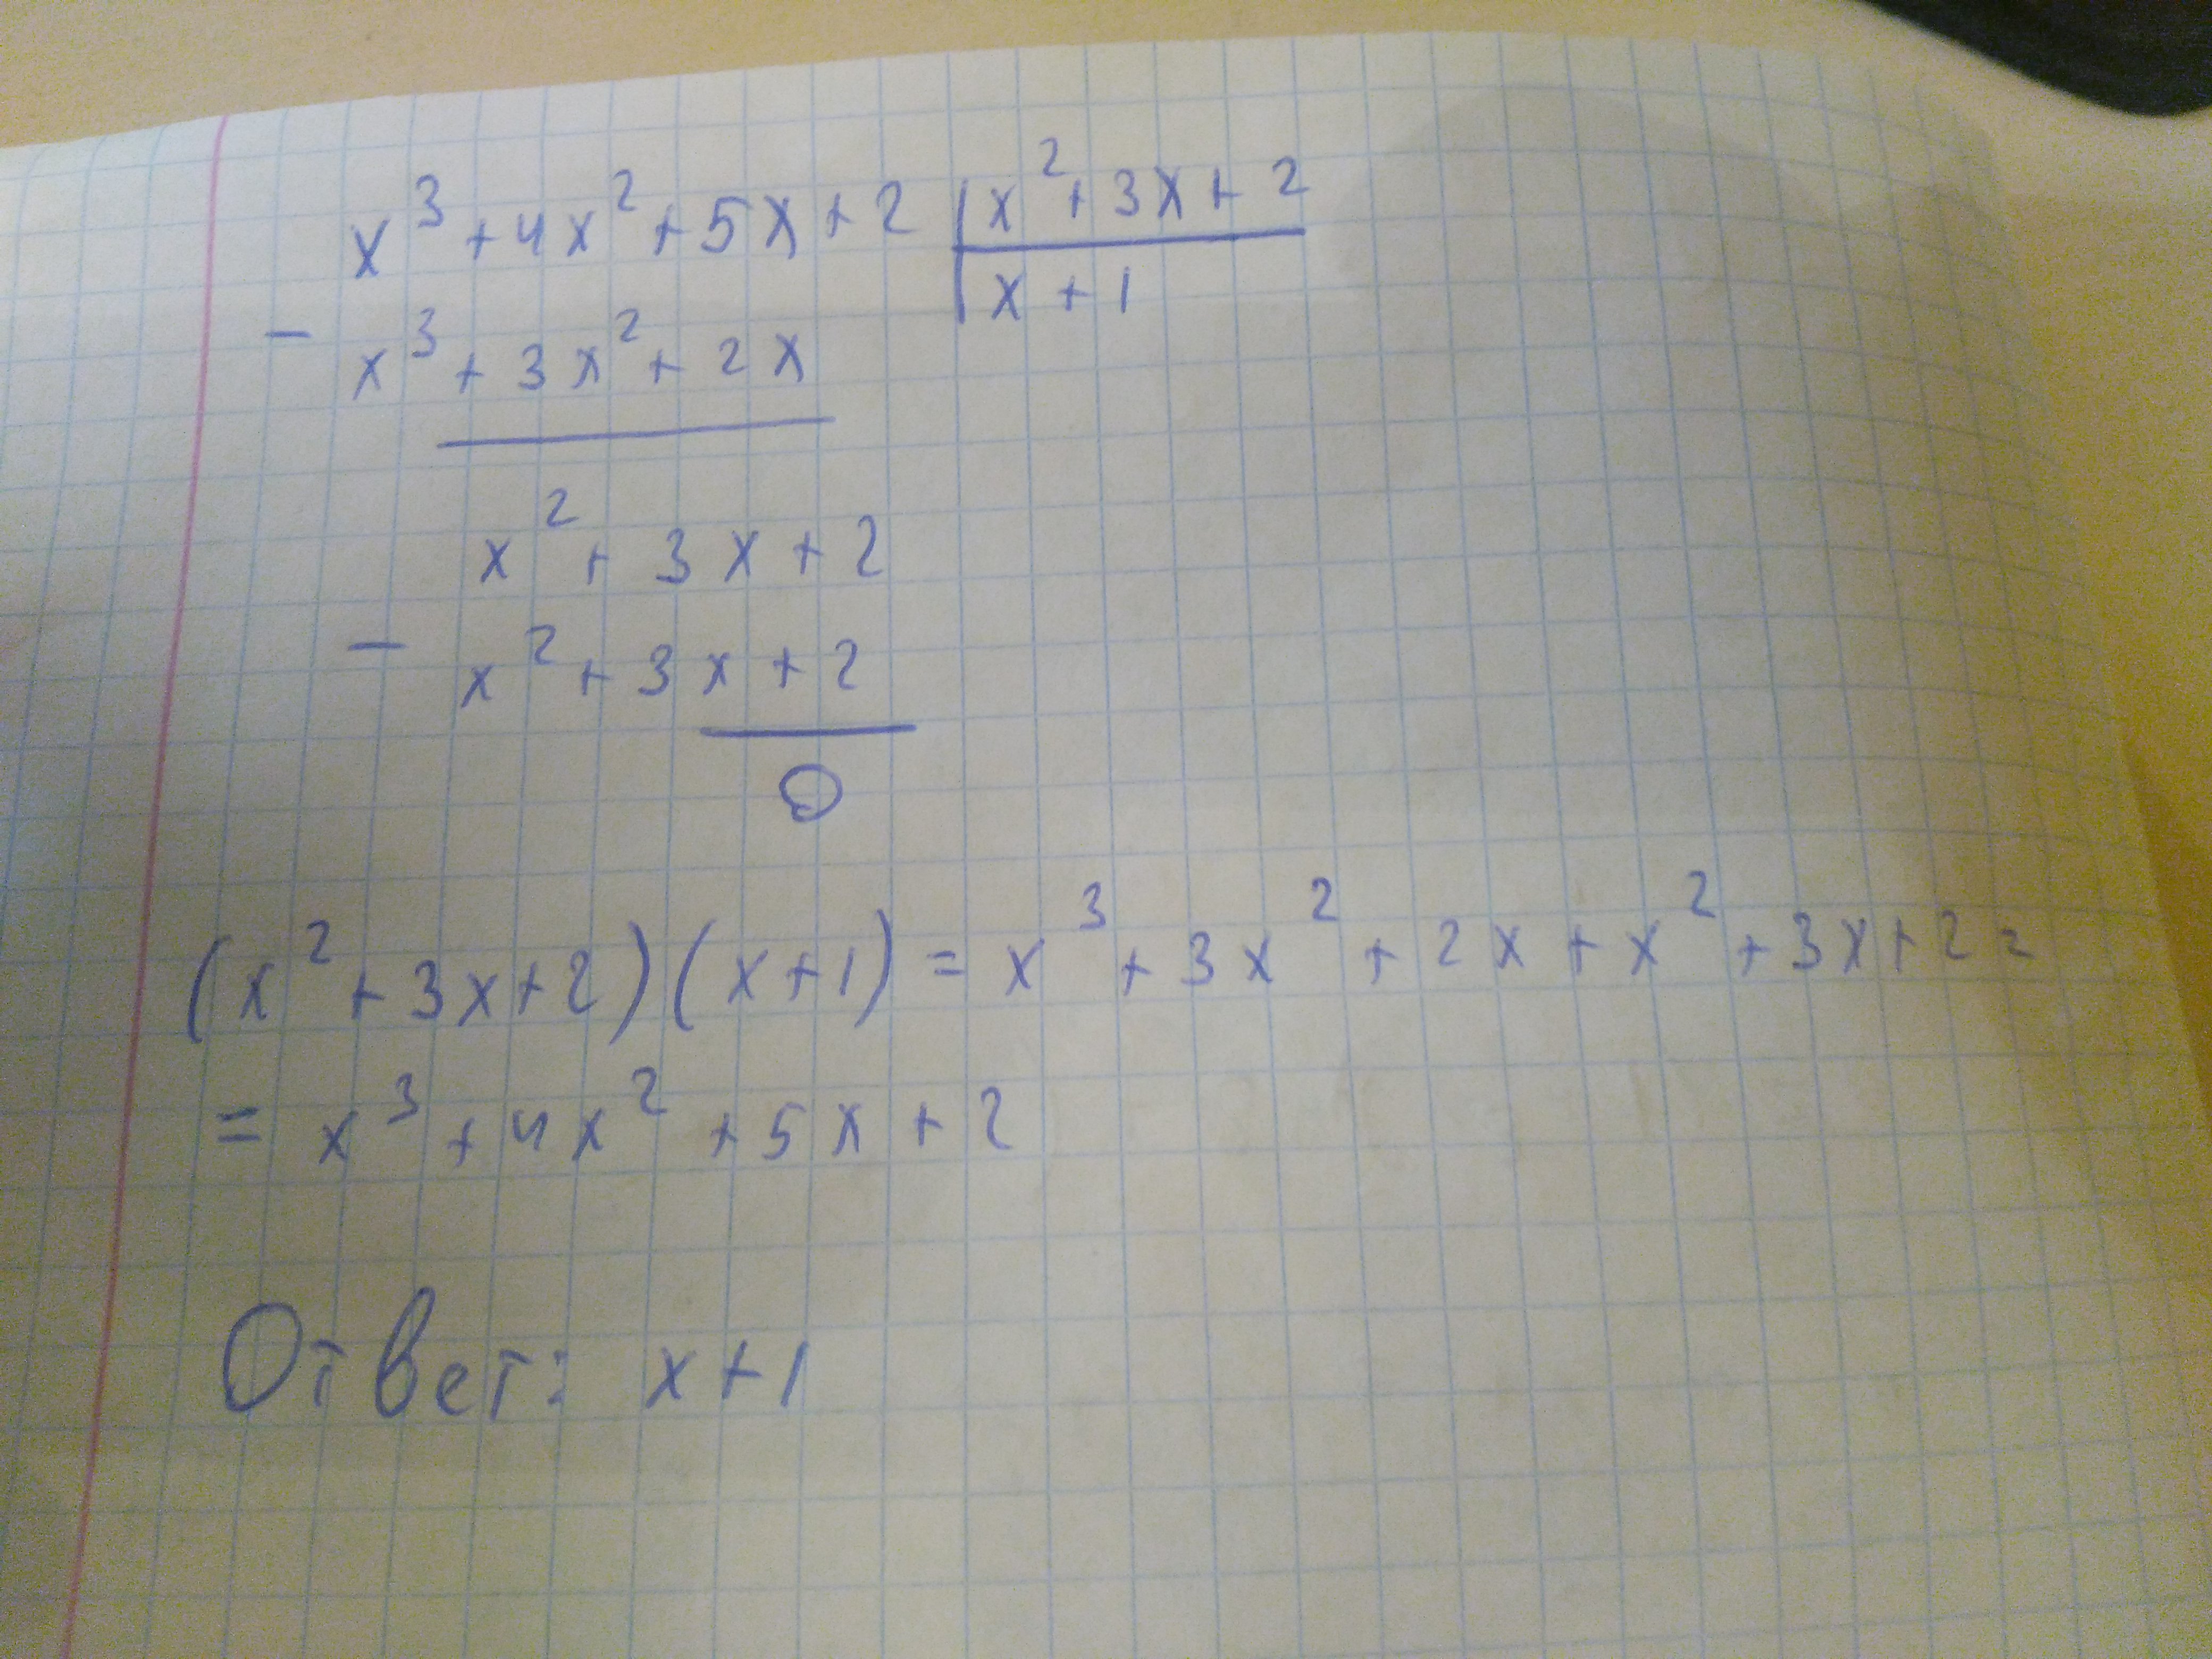 x³ + 4x² + 5x + 2 | x² + 3x + 2
x + 1
− x³ + 3x² + 2x
x² + 3x + 2
− x² + 3x + 2
0
(x² + 3x + 2)(x + 1) = x³ + 3x² + 2x + x² + 3x + 2 =
= x³ + 4x² + 5x + 2
Ответ: x + 1